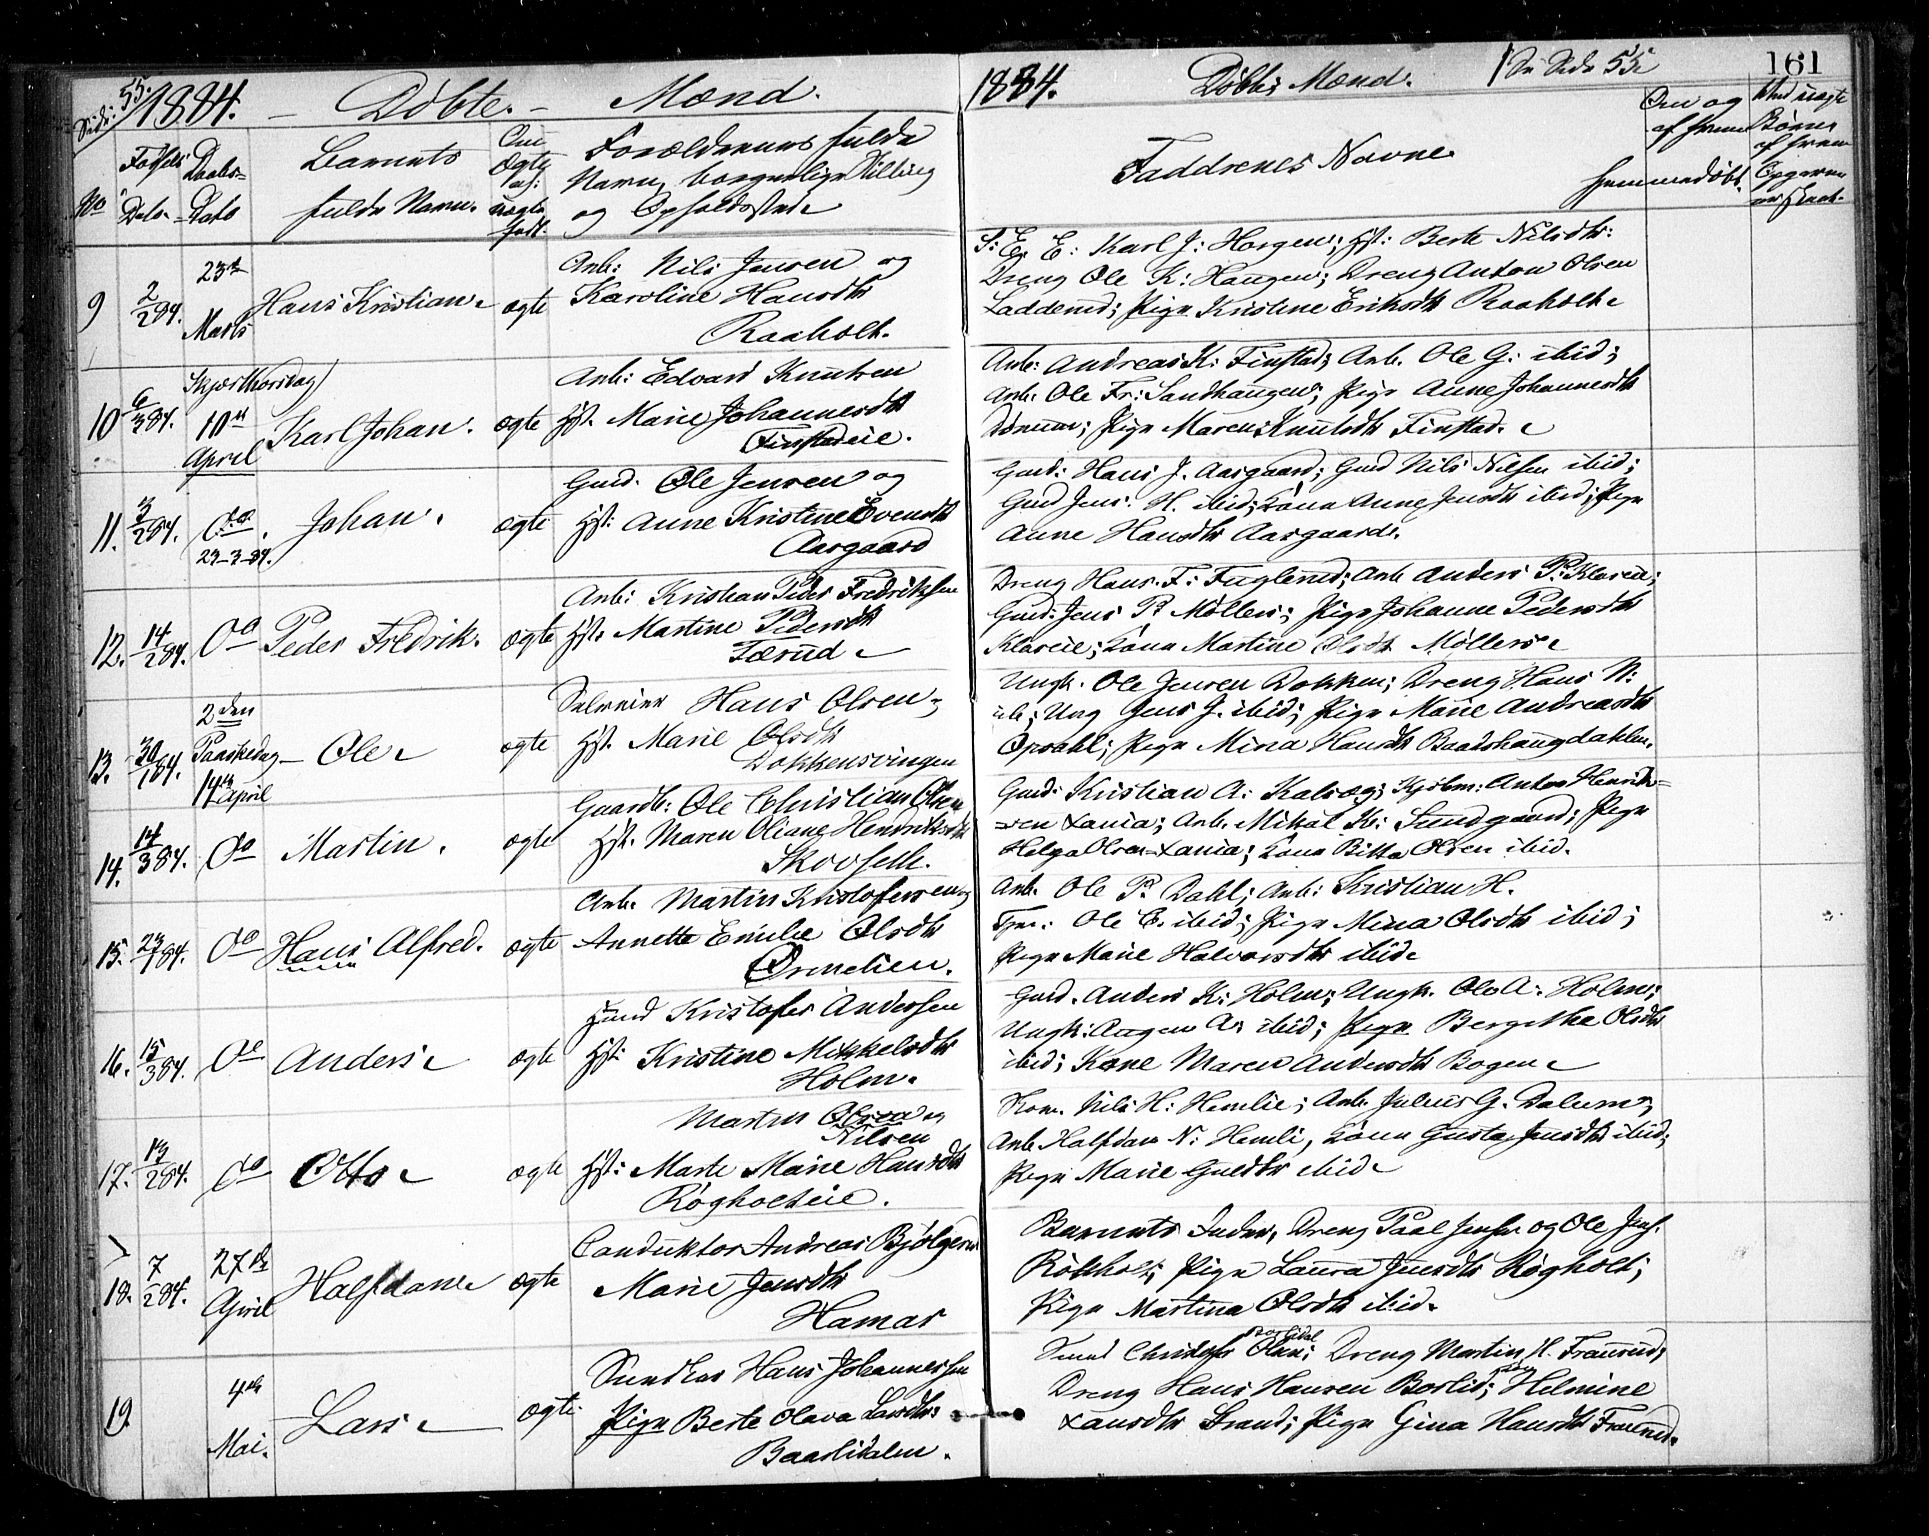 Side: 55. 1884. — Døbte. — Mænd.
No
Fødsels Dato
Daabs-Dato
Barnets fulde Navn.
Om Ægte eller uægte født.
Forældrenes fulde Navn, borgerlige Stilling og Opholdssted
9 2/2 84. 23de Marts Hans Kristian ægte
Arb: Nils Jensen og
Karoline Hansdtr
Raaholt.
10 6/3 84. Skjærthorsdag 10de April Karl Johan. ægte
Arb: Edvard Knutsen
Hst. Marie Johannesdtr
Finstadeie.
11. 3/2 84. do. 23-3-84. Johan. ægte
Gmd. Ole Jensen og
Hst: Anne Kristine Evensdtr
Aasgaard
12. 14/2 84. do Peder Fredrik. ægte
Arb: Kristian Peder Fredriksen
Hst. Martine Pedersdtr
Lærud
13. 30/1 84. 2den Paaskedag 14de April Ole ægte
Selveier Hans Olsen
Hst. Marie Olsdtr
Dokkensvingen
14. 14/3 84. do Martin. ægte
Gaardb: Ole Christian Olsen
Hst. Maren Oliane Henriksdtr
Skovseth.
15. 23/1 84. do Hans Alfred. ægte
Arb. Martin Kristofersen og
Annette Emilie Olsdtr
Ørnelien.
16. 15/3 84. do Anders ægte
Kristofer Andersen
Hst: Kristine Mikkelsdtr
Holm.
17. 13/2 84. do Otto ægte
Martin Olsen og
Nilsen
Hst: Marte Marie Hansdtr
Røgholteie.
18. 7/2 84. 27de April Halfdan ægte
Conduktor Andreas Bjølgerud
Marie Jensdtr
Hamar
19 4de Mai. Lars ægte.
Hans Johannessen
Pige Berte Olava Larsdtr:
Baarlidalen.
1884. Døbte Mænd. Se Side 55 161
Faddrenes Navne
Om og af hvem hjemmedøbt.
S: E. E: Karl J: Horgen; Hst: Berte Nilsdtr:
Dreng Ole K: Haugen; Dreng Anton Olsen
Ladderud; Pige Kristine Eriksdtr Raaholt
Arb: Andreas K: Finstad; Arb. Ole G: ibid;
Arb. Ole Fr: Sandhaugen; Pige Anne Johannesdtr
Dønum; Pige Maren Knutsdtr Finstad.
Gmd: Hans J. Aasgaard; Gmd Nils Nilsen ibid;
Gmd Jens H. ibid; Kone Anne Jensdtr ibid; Pige
Anne Hansdtr Aasgaard.
Dreng Hans F: Fuglerud; Arb Anders P: Klareie;
Gmd: Jens P: Møller; Pige Johanne Pedersdtr
Klareie; Kone Martine Olsdtr Møller
Ungk. Ole Jensen Dokken; Dreng Hans N:
ib; Ung Jens J. ibid; Pige Marie Andreasdtr
Opsahl; Pige Mina Hansdtr Baadshaugdahlen.
Gmd: Kristian A: Kalsæg; Kjøbm: Anton Henrik-
sen Xania; Arb. Mikal K: Sundgaard; Pige
Helga Olsen Xania; Kone Bitta Olsen ibid.
Arb. Ole P. Dahl; Arb: Kristian H.
Ole C. ibid; Pige Mina Olsdtr ibid;
Pige Marie Halvorsdtr ibid.
Gmd. Anders K: Holm; Ungk. Ole A: Holm;
Ungk: Augen A: ibid; Pige Bergithe Olsdtr
ibid; Kone Maren Andersdtr Bogen
Nils H: Hemlie; Arb. Julius G. Dalum;
Arb Halfdan N: Hemli, Kone Gusta Jensdtr ibid;
Pige Marie Guldtr ibid
Barnets Fader, Dreng Paal Jensen og Ole Jens.
Rökholt; Pige Laura Jensdtr Røgholt;
Pige Martina Olsdtr ibid.
Smed Christofer Olsen; Dreng Martin H. Fraurud;
Dreng Hans Hansen Borlid; Pige Helmine
Larsdtr Brand; Pige Gina Hansdtr Fraurud.